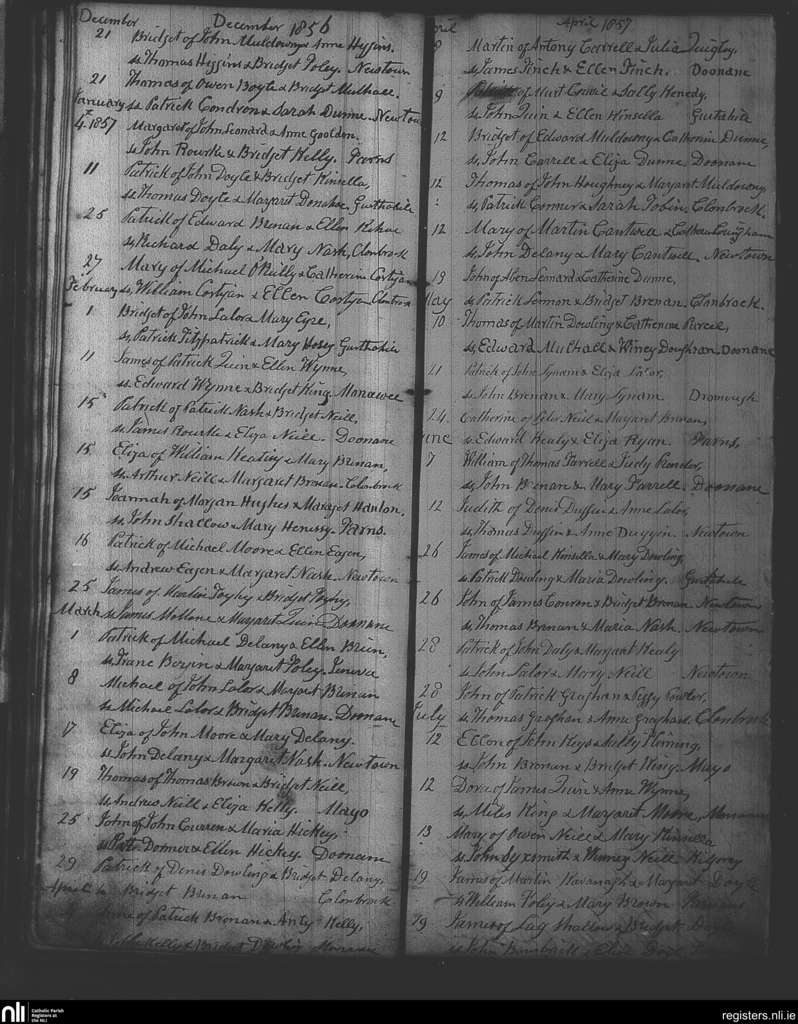 December December 1856
21 Bridget of John Muldowny & Anne Higgins.
ss Thomas Higgins & Bridget Foley. Newtown
21 Thomas of Owen Boyle & Bridget Mulhall.
January ss Patrick Condron & Sarah Dunne. Newtown
4th 1857 Margaret of John Leonard & Anne Goolden.
ss John Rourke & Bridget Kelly. Farns
11 Patrick of John Doyle & Bridget Kinsella,
ss Thomas Doyle & Margaret Donahoe.
25 Patrick of Edward Brenan & Ellen
ss Richard Daly & Mary Nash, Clonbrock
27 Mary of Michael O'Reilly & Catherine
February ss William & Ellen
1 Bridget of John Lalor & Mary Eyre,
ss Patrick Fitzpatrick & Mary
11 James of Patrick Quin & Ellen Wynne,
ss Edward Wynne & Bridget King.
15 Patrick of Patrick Nash & Bridget Neill,
ss James Rourke & Eliza Neill. Doonane
15 Eliza of William Keating & Mary Brenan,
ss Arthur Neill & Margaret Brenan. Clonbrock
15 Joannah of Morgan Hughes & Margret Hanlon,
ss John Shallow & Mary Henessy. Farns.
16 Patrick of Michael Moore & Ellen Eagen,
ss Andrew Eagen & Margaret Nash. Newtown
25 James of Martin & Bridget
March ss James & Margaret Quin Doonane
1 Patrick of Michael Delany & Ellen Brien,
ss Franc & Margaret Foley.
8 Michael of John Lalor & Margaret Brenan
ss Michael Lalor & Bridget Brenan. Doonane
17 Eliza of John Moore & Mary Delany.
ss John Delany & Margaret Nash. Newtown
19 Thomas of Thomas Brown & Bridget Neill,
ss Andrew Neill & Eliza Kelly. Mayo
25 John of John Curren & Maria Hickey.
ss & Ellen Hickey. Doonane
29 Patrick of Denis Dowling & Bridget Delany.
April ss Bridget Brenan Clonbrock
of Patrick Brenan & Anty Kelly,
Kelly & Bridget
April 1857
8 Martin of Antony Carrell & Julia Quigley.
ss James Finch & Ellen Finch. Doonane
9 of Murt & Sally Henedy,
ss John Quin & Ellen Kinsella
12 Bridget of Edward Muldowny & Catherine Dunne,
ss John Carrell & Eliza Dunne. Doonane
12 Thomas of John Houghney & Margaret Muldowny
ss Patrick Connor & Sarah Tobin. Clonbrock.
12 Mary of Martin Cantwell &
ss John Delany & Mary Cantwell. Newtown
19 John of Leonard & Catherine Dunne,
May ss Patrick Lennon & Bridget Brenan. Clonbrock.
10 Thomas of Martin Dowling & Catherine Purcell,
ss Edward Mulhall & Winey Doughran. Doonane
21 Patrick of John & Eliza Lalor,
ss John Brenan & Mary
24 Catherine of Peter Neill & Margaret Brenan,
June ss Edward Healy & Eliza Ryan. Farns,
7 William of Thomas Farrell & Judy
ss John Brenan & Mary Farrell. Doonane
12 Judith of Denis Duffin & Anne Lalor,
ss Thomas Duffin & Anne Duggan Newtown
26 James of Michael Kinsella & Mary Dowling,
ss Patrick Dowling & Maria Dowling.
26 John of James Conron & Bridget Brenan Newtown
ss Thomas Brenan & Maria Nash. Newtown
28 Patrick of John Daly & Margaret Healy
ss John Lalor & Mary Neill Newtown
28 John of Patrick Graghan & Peggy Lawler,
July ss Thomas Graghan & Anne Graghan. Clonbrock
12 Ellen of John Keys & Fleming,
ss John Brenan & Bridget King. Mayo
12 of James Quin & Anne Wynne,
ss Miles King & Margaret Moore,
13 Mary of Owen Neill & Mary Kinsella
ss John Sixsmith & Neill
19 James of Martin Kavanagh & Margaret Doyle
ss William Foley & Mary Brown
19 James of Shallow & Bridget Doyle
ss John &
nli Catholic Parish Registers at the NLI
registers.nli.ie